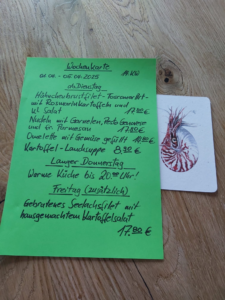 Wochenkarte
02.06. - 05.06.2025
ab Dienstag
Hähnchenbrustfilet -
mit Rosmarinkartoffeln und
kl. Salat 17,80 €
Nudeln mit Garnelen, Pesto Genovese
und Parmesan 17,80 €
Omelette mit Gemüse gefüllt
Kartoffel - Lauchsuppe 8,90 €
Langer Donnerstag
Warme Küche bis 20.00 Uhr!
Freitag (zusätzlich)
Gebratenes Seelachsfilet mit
hausgemachtem Kartoffelsalat
17,80 €